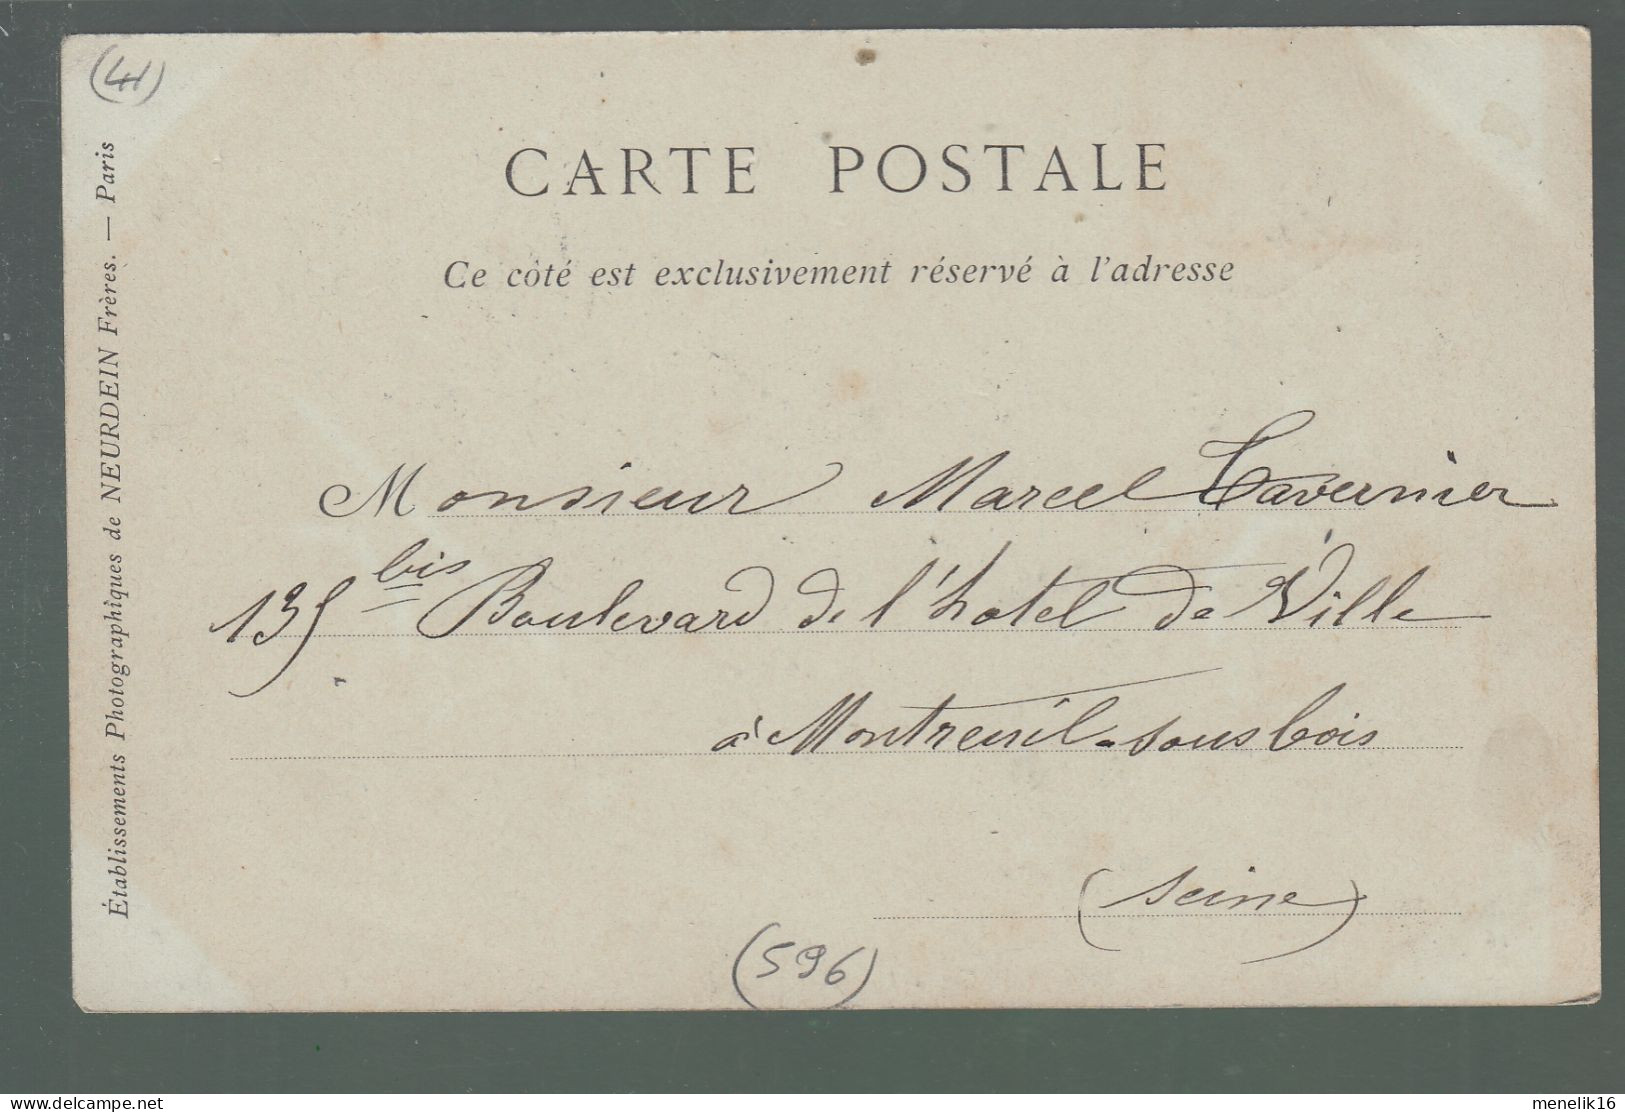 (41)
CARTE POSTALE
Ce côté est exclusivement réservé à l'adresse
Établissements Photographiques de NEURDEIN Frères. — Paris
Monsieur Marcel Tavernier
135 bis Boulevard de l'hotel de Ville
à Montreuil-sous bois
(Seine)
(596)
delcampe.net
menelik16